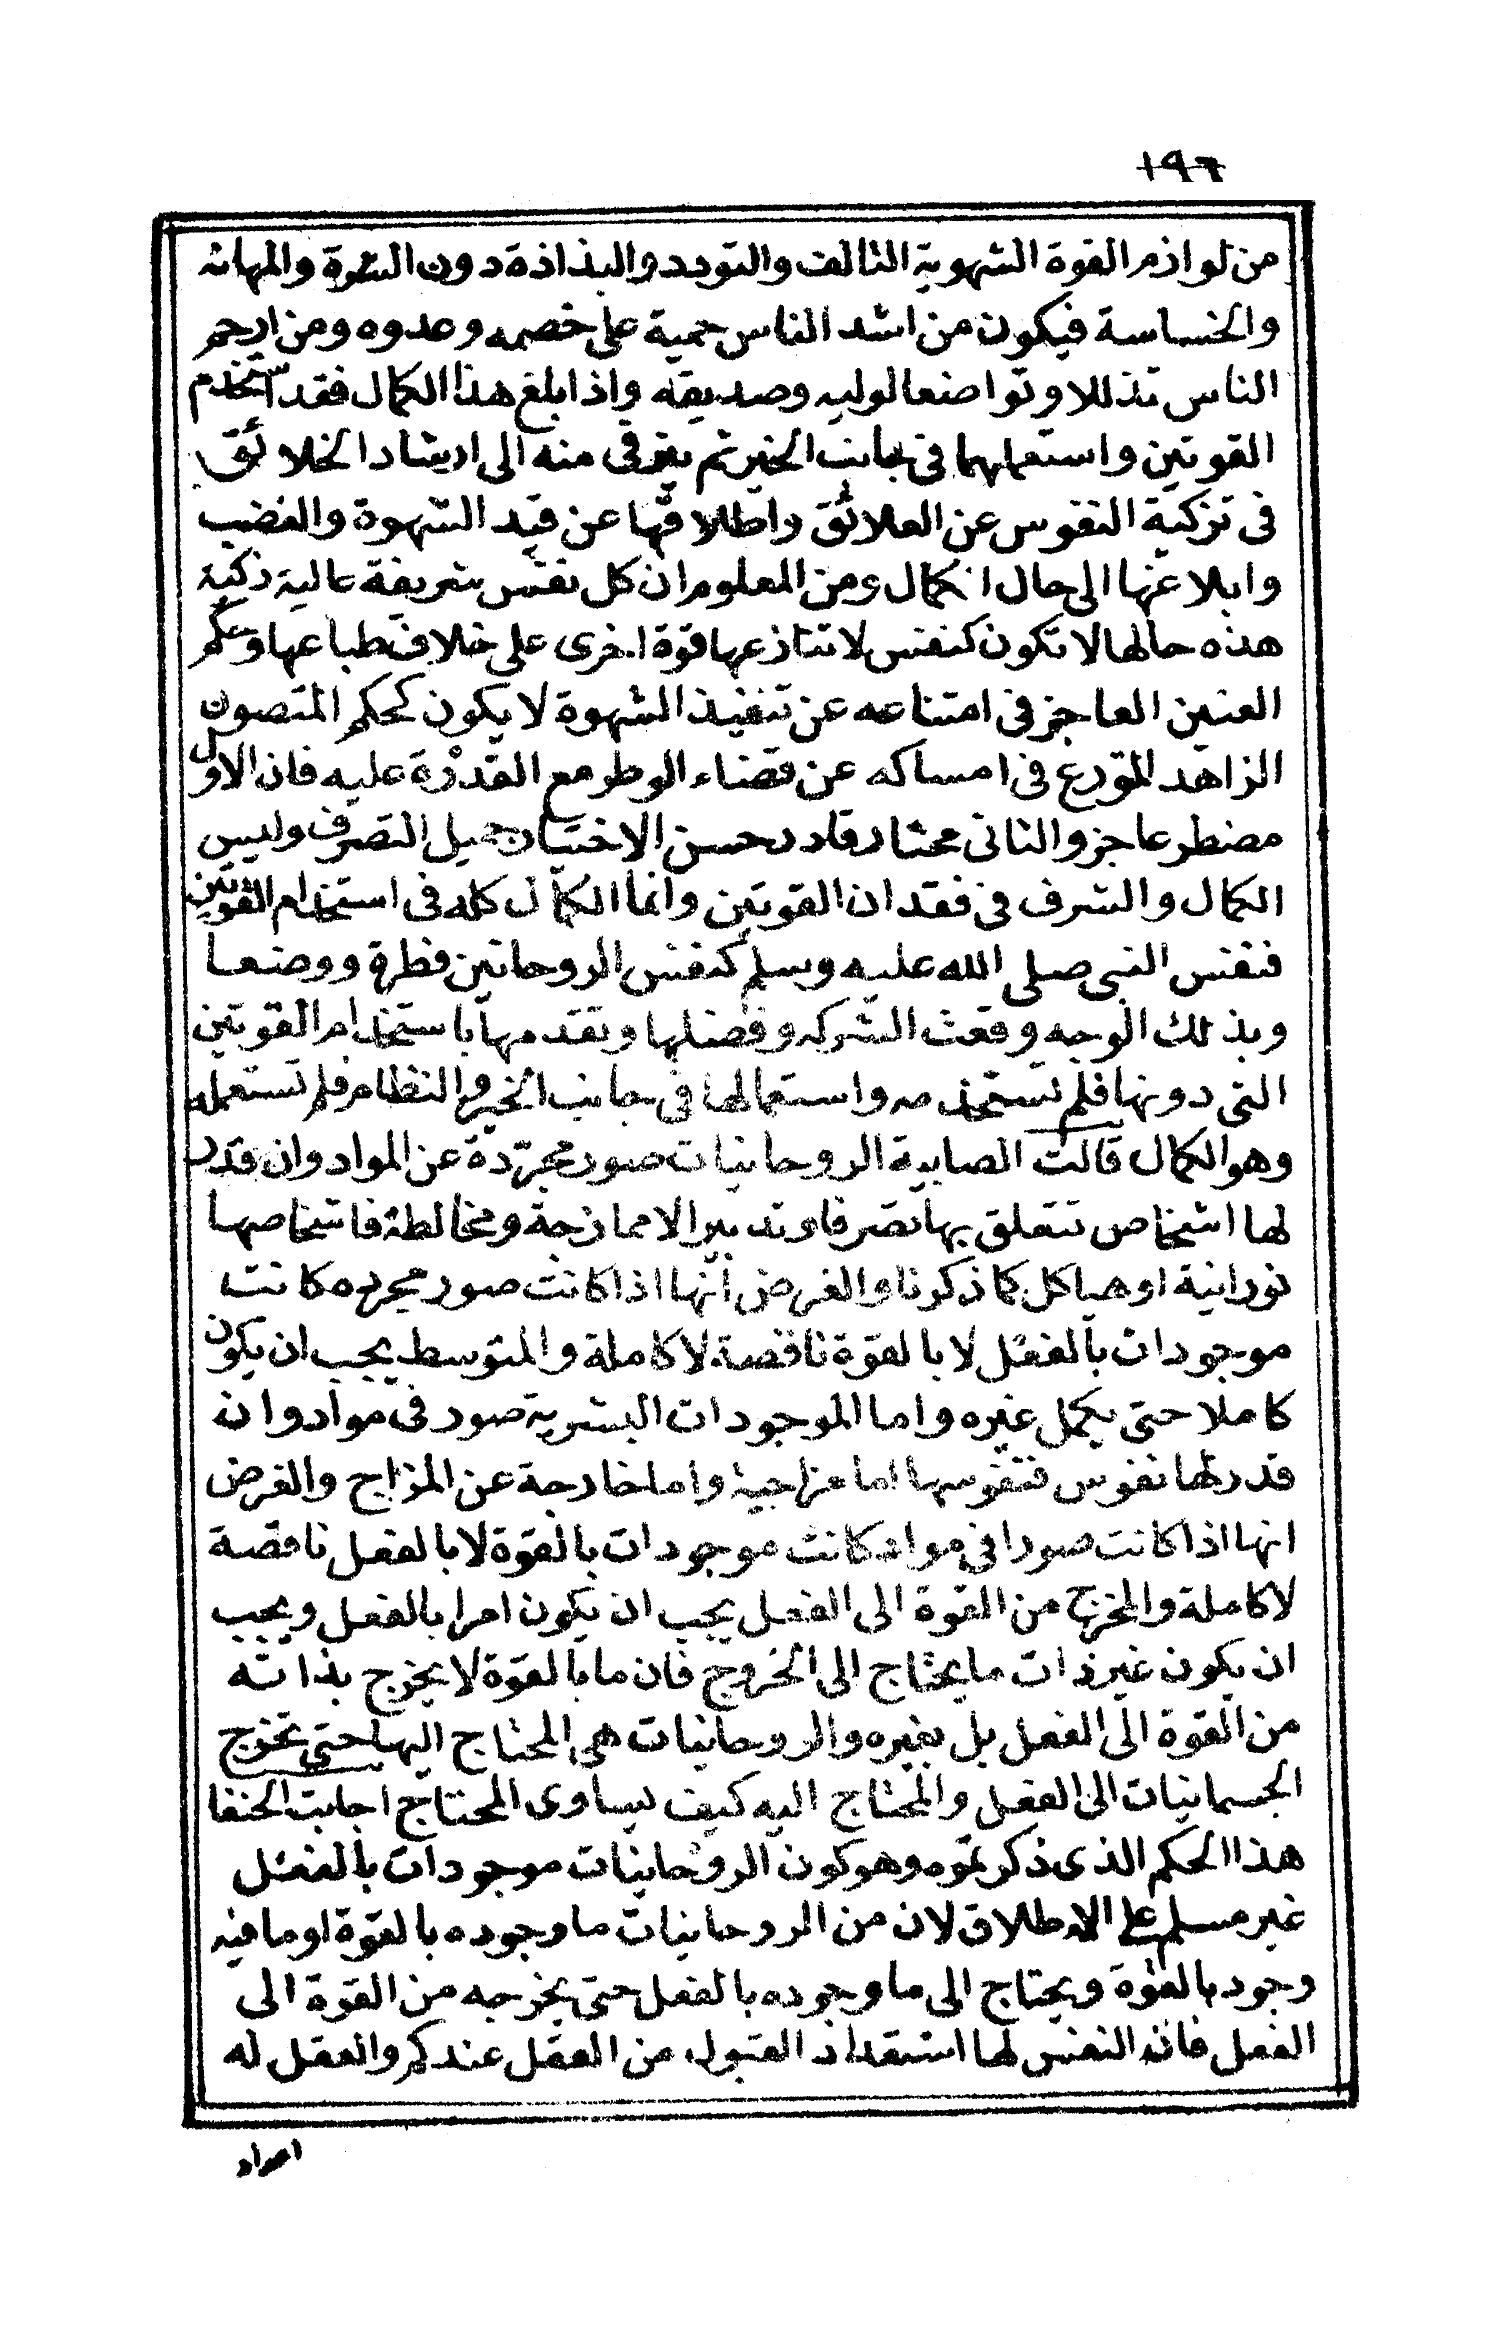 ١٩٦
من لوازم القوة الشهوية التالف والتودد والبذاذة دون الشره والمهانة
والخساسة فيكون من اشد الناس حمية على خصمه وعدوه ومن ارحم
الناس تذللا وتواضعا لوليه وصديقه واذا بلغ هذا الكمال فقد استخدم
القوتين واستعملهما فى جانب الخير ثم يترقى منه الى ارشاد الخلائق
فى تزكية النفوس عن العلائق واطلاقها عن قيد الشهوة والغضب
وابلاغها الى حال الكمال ومن المعلوم ان كل نفس شريفة عالية زكية
هذه حالها لا تكون كنفس لا تنازعها قوة اخرى على خلاف طباعها وحكم
العنين العاجز فى امتناعه عن تنفيذ الشهوة لا يكون كحكم المتصون
الزاهد المتورع فى امساكه عن قضاء الوطر مع القدرة عليه فان الاول
مضطر عاجز والثانى مختار قادر حسن الاختيار جميل التصرف وليس
الكمال والشرف فى فقدان القوتين وانما الكمال كله فى استخدام القوتين
فنفس النبى صلى الله عليه وسلم كنفس الروحانين فطرة ووضعا
وبذلك الوجه وقعت الشركه وفضلها وتقدمها باستخدام القوتين
التى دونها فلم تستخدمه واستعمالها فى جانب الخير والنظام فلم تستعمله
وهو الكمال قالت الصابية الروحانيات صور مجرّدة عن المواد وان قدر
لها اشخاص تتعلق بها تصرفا وتدبيرا لا ممازجة ومخالطة فاشخاصها
نورانية او هياكل كما ذكرنا والغرض انها اذا كانت صور مجرده كانت
موجودات بالفعل لا بالقوة ناقصة لا كاملة والمتوسط يجب ان يكون
كاملا حتى يكمل غيره واما الموجودات البشرية صور فى مواد وان
قدر لها نفوس فنفوسها اما مزاجية واما خارجة عن المزاج والغرض
انها اذا كانت صورا فى مواد كانت موجودات بالقوة لا بالفعل ناقصة
لا كاملة والمخرج من القوة الى الفعل يجب ان يكون امرا بالفعل ويجب
ان يكون غير ذات ما يحتاج الى الخروج فان ما بالقوة لا يخرج بذاته
من القوة الى الفعل بل بغيره والروحانيات هى المحتاج اليها حتى تخرج
الجسمانيات الى الفعل والمحتاج اليه كيف يساوى المحتاج اجابت الحنفا
هذا الحكم الذى ذكرتموه وهو كون الروحانيات موجودات بالفعل
غير مسلم على الاطلاق لان من الروحانيات ما وجوده بالقوة او ما فيه
وجود بالقوة ويحتاج الى ما وجوده بالفعل حتى يخرجه من القوة الى
الفعل فان النفس لها استعداد القبول من العقل عندكم والعقل له
اعداد